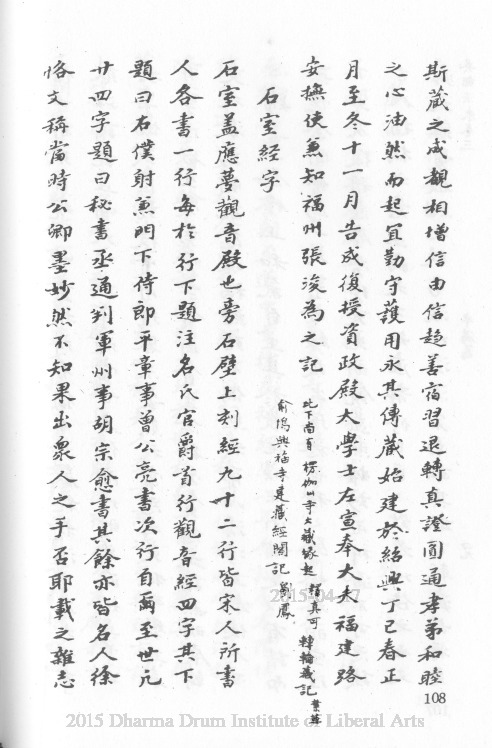 斯藏之成觀相增信由信趍善宿習退轉真證圓通孝弟和睦
之心油然而起宜勤守護用永其傳藏始建於紹興丁巳春正
月至冬十一月告成復授資政殿大學士左宣奉大夫福建路
安撫使兼知福州張浚為之記
此下尚有 楞伽山寺大藏緣起 釋真可 轉輪藏記 葉夢
俞 興福寺建藏經閣記 劉鳳
石室經字
石室蓋應夢觀音殿也旁石壁上刻經九十二行皆宋人所書
人各書一行每於行下題注名氏官爵首行觀音經四字其下
題曰右僕射兼門下侍郎平章事曾公亮書次行自爾至世凡
廿四字題曰秘書丞通判軍州事胡宗愈書其餘亦皆名人徐
恪文稱當時公卿墨妙然不知果出衆人之手否耶載之雜志
108
2015-04-17
2015 Dharma Drum Institute of Liberal Arts